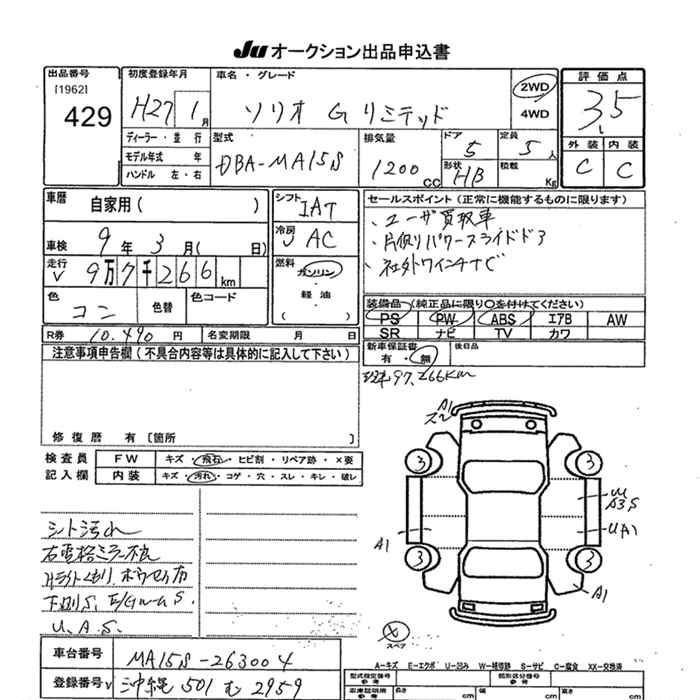 Ju オークション出品申込書
出品番号 [1962] 429
初度登録年月 H27 1月
車名・グレード ソリオ G リミテッド
2WD
4WD
評価点 3.5
外装 C 内装 C
ディーラー・並行
モデル年式 年
ハンドル 左・右
型式 DBA-MA15S
排気量 1200 CC
ドア 5
形状 HB
定員 5人
積載 Kg
車歴 自家用( )
車検 9年3月( 日)
走行 9万7千266km
色 コン 色替 色コード
シフト IAT
冷房 AC
燃料 ガソリン・軽油・( )
セールスポイント(正常に機能するものに限ります)
、ユーザ買取車
、片側パワースライドドア
、社外ワインナビ
装備品(純正品に限り○を付けてください)
PS PW ABS エアB AW
SR ナビ TV カワ
新車保証書 有・無
後日品
R券 10,490円 名変期限 月 日
注意事項申告欄(不具合内容等は具体的に記入して下さい)
97,266Km
修復歴 有 〔箇所 〕
検査員記入欄
FW キズ・飛石・ヒビ割・リペア跡・×要
内装 キズ・汚れ・コゲ・穴・スレ・キレ・破レ
シート汚れ
右電格ミラー不良
下廻りS. E/GルームS.
U.A.S.
A1
3 3
3 3
A1
A3 S
UA1
A1
スペア
A-キズ E-エクボ U-凹み W-補修跡 S-サビ C-腐食 XX-交換済
車台番号 MA15S-263004
登録番号 沖縄 501 む 2959
型式指定番号 参考
類別区分番号 参考
車庫証明用 参考 長さ cm 幅 cm 高さ cm